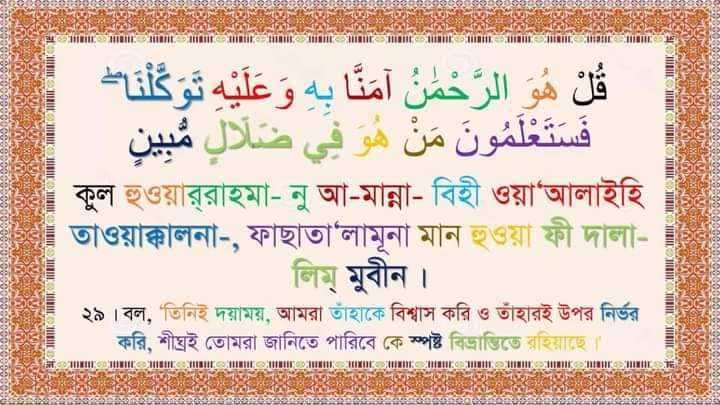 قُلْ هُوَ الرَّحْمَٰنُ آمَنَّا بِهِ وَعَلَيْهِ تَوَكَّلْنَا ۖ
فَسَتَعْلَمُونَ مَنْ هُوَ فِي ضَلَالٍ مُّبِينٍ
কুল হুওয়াররাহমা- নু আ-মান্না- বিহী ওয়া‘আলাইহি
তাওয়াক্কালনা-, ফাছাতা‘লামূনা মান হুওয়া ফী দালা-
লিম্ মুবীন ।
২৯ । বল, ‘তিনিই দয়াময়, আমরা তাঁহাকে বিশ্বাস করি ও তাঁহারই উপর নির্ভর
করি, শীঘ্রই তোমরা জানিতে পারিবে কে স্পষ্ট বিভ্রান্তিতে রহিয়াছে ।’